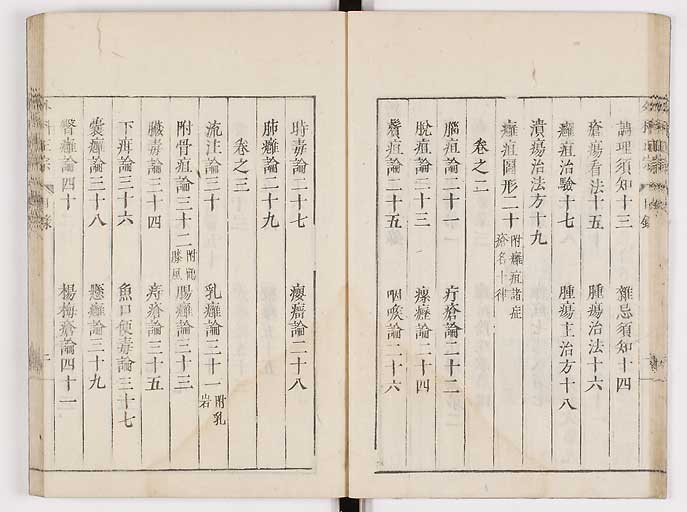 調理須知十三 雜忌須知十四
瘡瘍看法十五 腫瘍治法十六
癰疽治驗十七 腫瘍主治方十八
潰瘍治法方十九
癰疽圖形二十 附癰疽諸症 瘡名十律
卷之二
腦疽論二十一 疔瘡論二十二
脫疽論二十三 瘰癧論二十四
鬢疽論二十五 咽喉論二十六
時毒論二十七 癭瘤論二十八
肺癰論二十九
卷之三
流注論三十 乳癰論三十一 附乳岩
附骨疽論三十二 附鶴膝風 腸癰論三十三
臟毒論三十四 痔瘡論三十五
下疳論三十六 魚口便毒論三十七
囊癰論三十八 懸癰論三十九
臀癰論四十 楊梅瘡論四十一
外科正宗 目錄